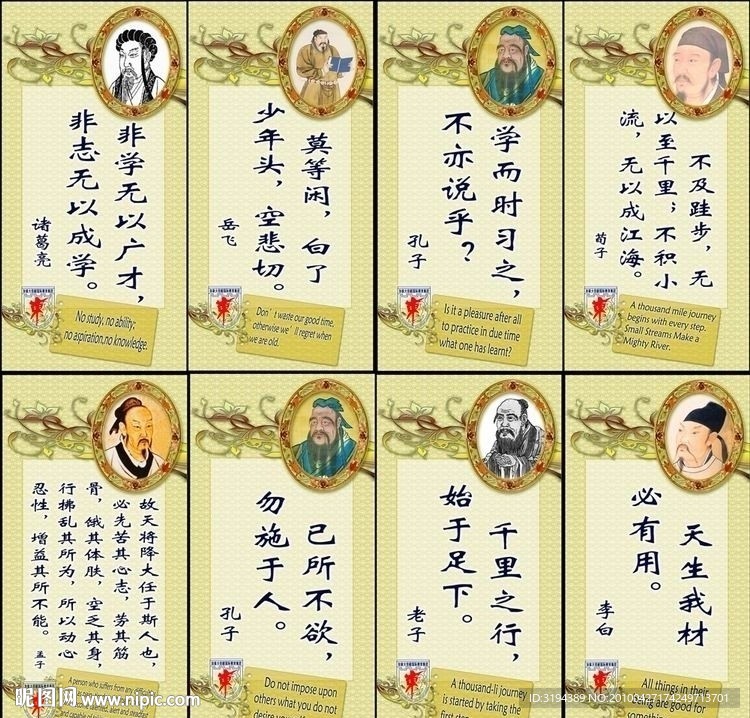 非学无以广才，
非志无以成学。
诸葛亮
No study, no ability;
no aspiration,no knowledge.
莫等闲，白了
少年头，空悲切。
岳飞
Don't waste our good time,
otherwise we'll regret when
we are old.
学而时习之，
不亦说乎？
孔子
Is it a pleasure after all
to practice in due time
what one has learnt?
不及跬步，无
以至千里；不积小
流，无以成江海。
荀子
A thousand mile journey
begins with every step.
Small Streams Make a
Mighty River.
故天将降大任于斯人也，
必先苦其心志，劳其筋
骨，饿其体肤，空乏其身，
行拂乱其所为，所以动心
忍性，增益其所不能。
孟子
A person who suffers from
已所不欲，
勿施于人。
孔子
Do not impose upon
others what you do not
千里之行，
始于足下。
老子
A thousand-li journey
is started by taking the
天生我材
必有用。
李白
All things in their
being are good for
昵图网 www.nipic.com
ID:3194389 NO:20100427174249713701